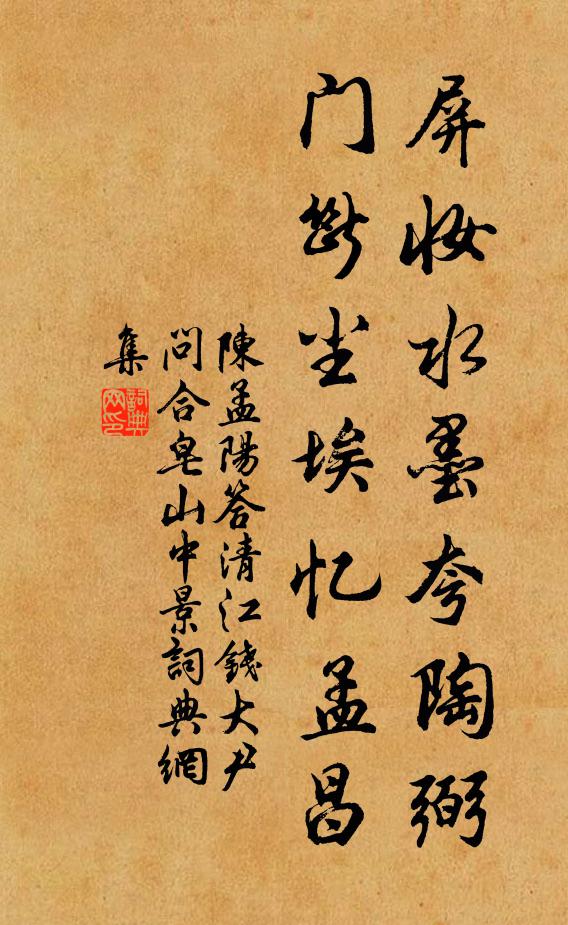 屏妆水墨夸陶弼
门断尘埃忆孟昌
陳孟陽答清江錢大尹
問合皂山中景詞典網
集
詞典
网印